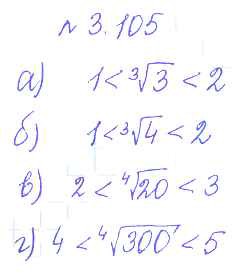 № 3.105
а) 1 < ∛3 < 2
б) 1 < ∛4 < 2
в) 2 < ∜20 < 3
г) 4 < ∜300 < 5